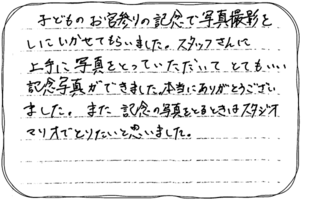 子どものお宮参りの記念で写真撮影を
しにいかせてもらいました。スタッフさんに
上手に写真をとっていただいて とてもいい
記念写真ができました。本当にありがとうござい
ました。また 記念の写真をとるときはスタジオ
マリオでとりたいと思いました。